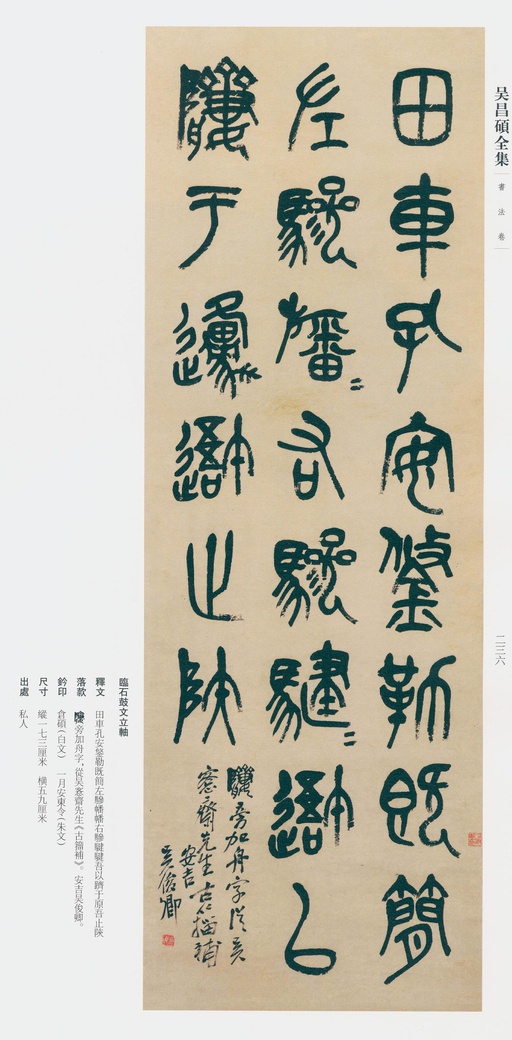 吴昌碩全集
書法卷
二三六
田車孔安鋚勒既簡
左驂旛〻右驂騝〻吾以
隮于邍吾止陝
旁加舟字從吴
愙齋先生古籀補
安吉
吴俊卿
臨石鼓文立軸
釋文 田車孔安鋚勒既簡左驂幡幡右驂騝騝吾以隮于原吾止陝
落款 旁加舟字,從吴愙齋先生《古籀補》。安吉吴俊卿。
鈐印 倉碩(白文) 一月安東令(朱文)
尺寸 縱一七三厘米 橫五九厘米
出處 私人